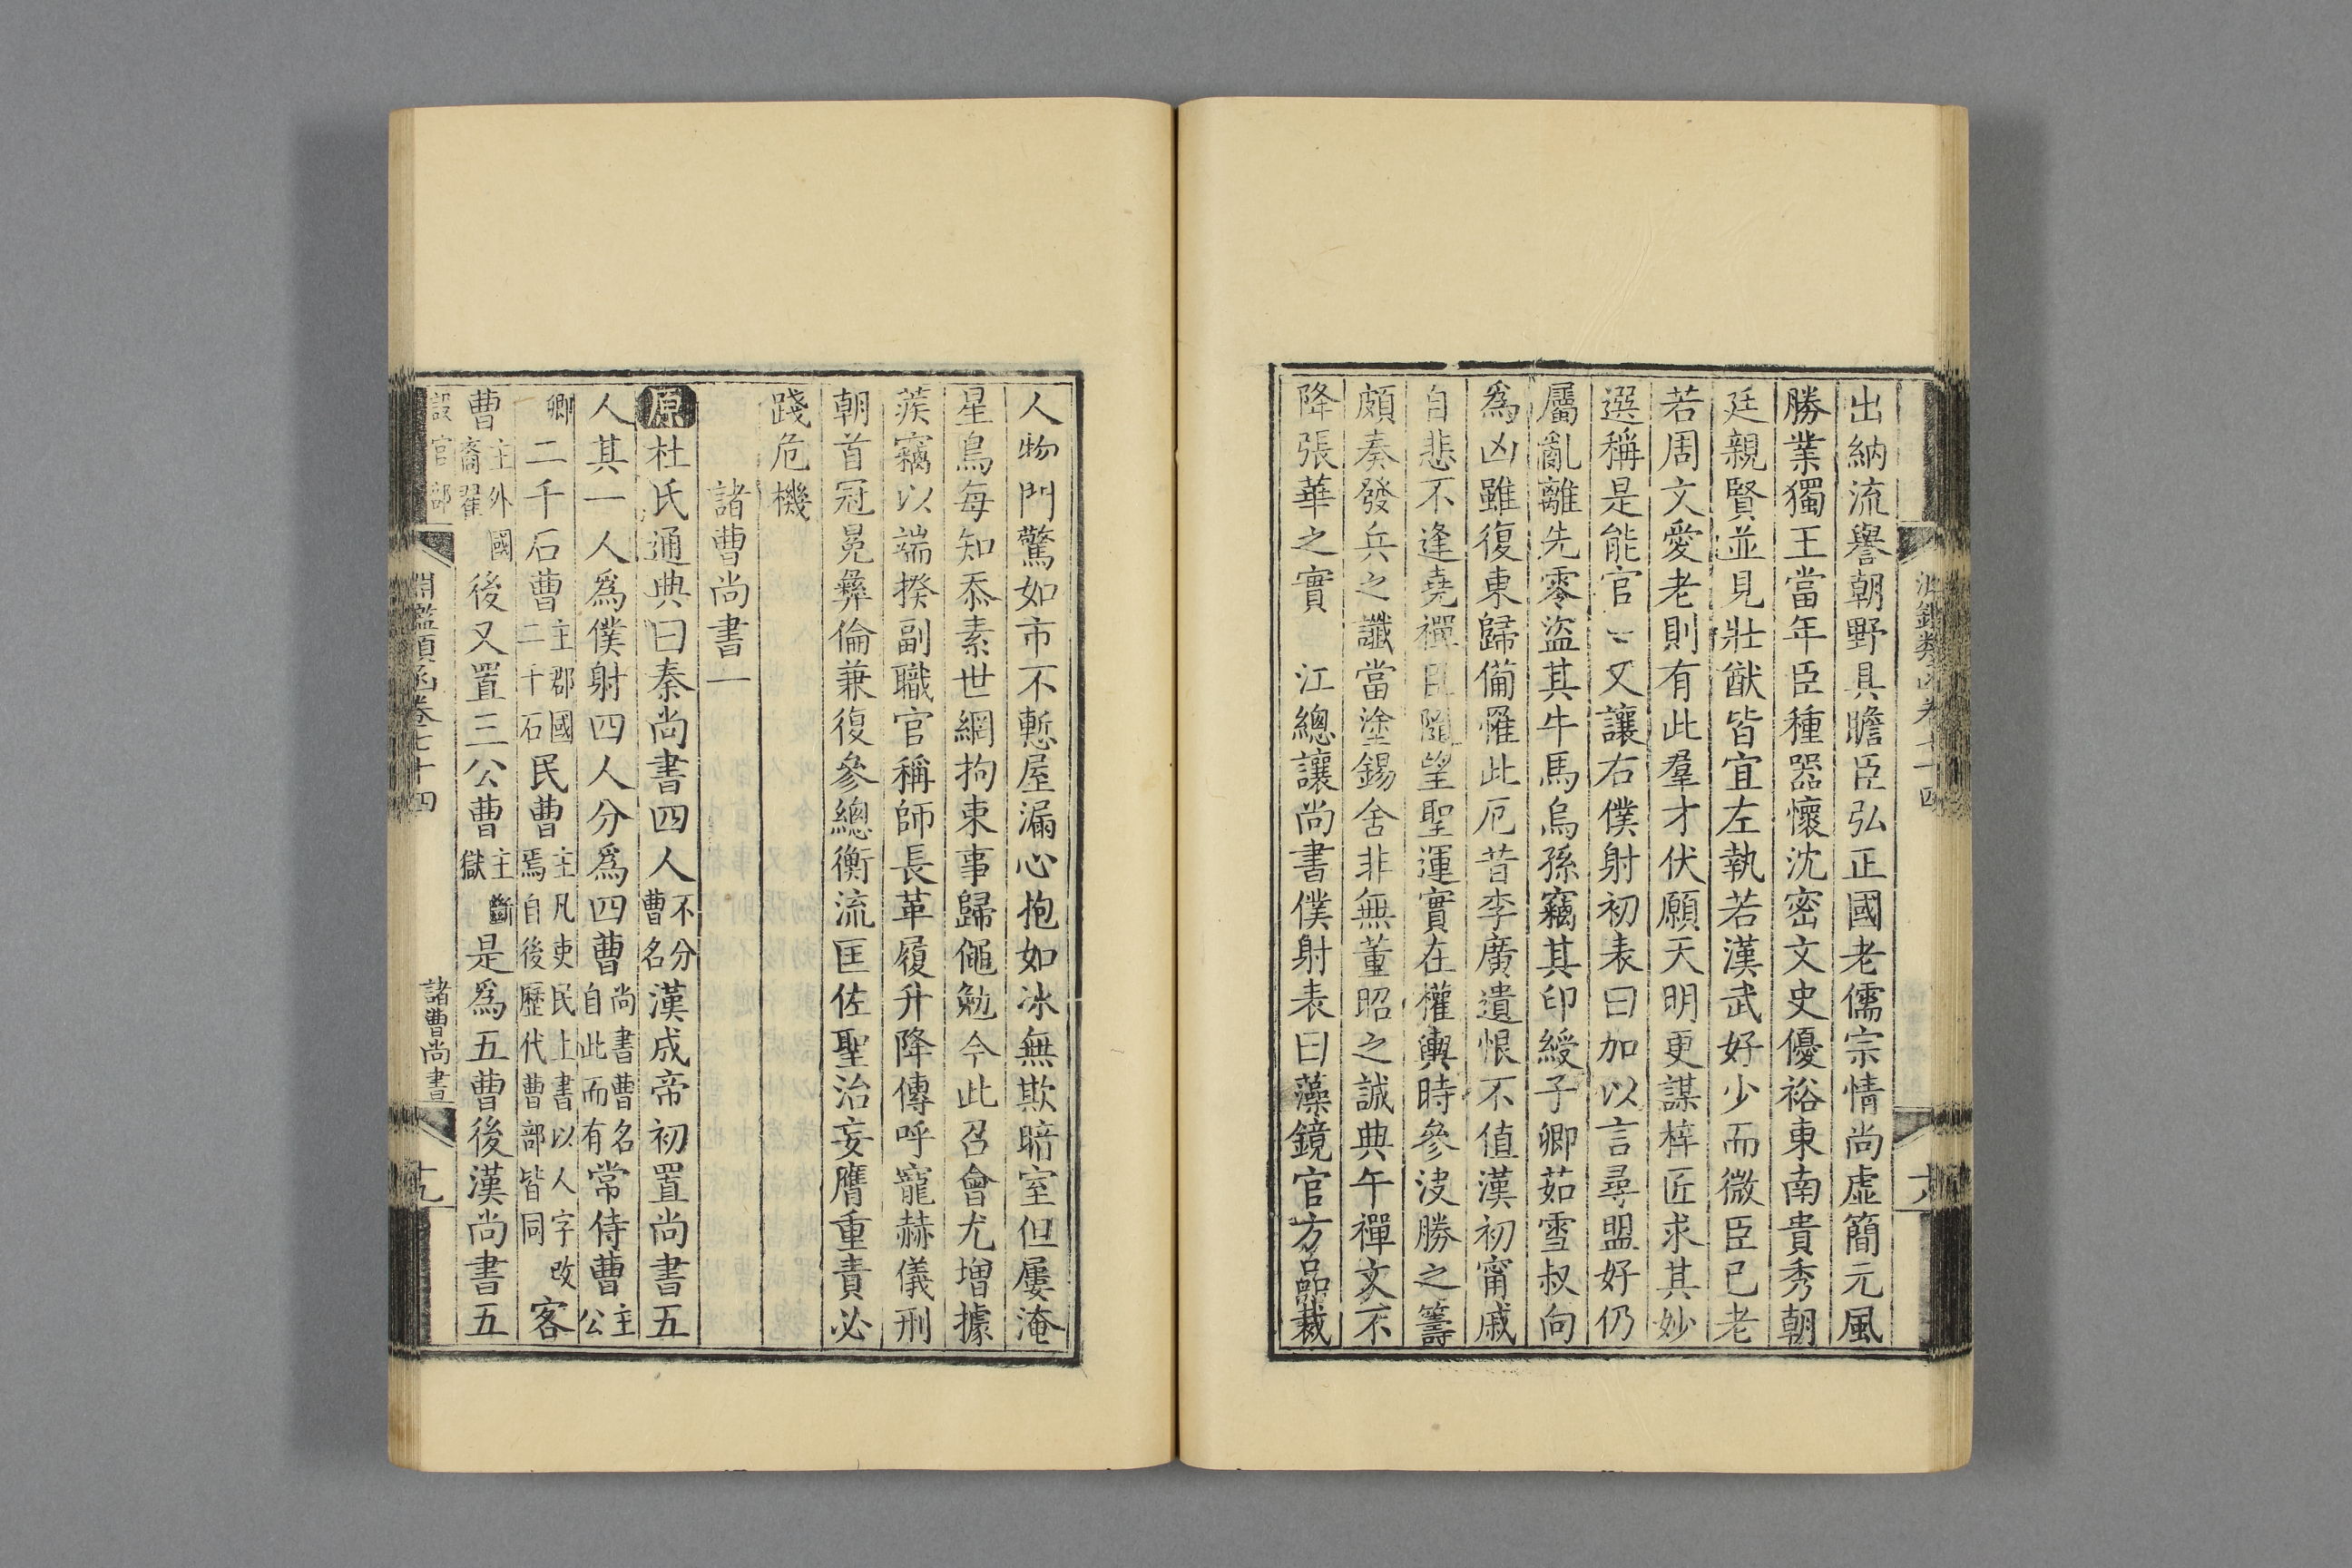 出納流譽朝野具瞻臣弘正國老儒宗情尚虛簡元風
勝業獨王當年臣種器懷沈密文史優裕東南貴秀朝
廷親賢並見壯猷皆宜左執若漢武好少而微臣已老
若周文愛老則有此羣才伏願天明更謀梓匠求其妙
選稱是能官 又讓右僕射初表曰加以言尋盟好仍
屬亂離先零盜其牛馬烏孫竊其印綬子卿茹雪叔向
爲凶雖復東歸備罹此厄昔李廣遺恨不值漢初甯戚
自悲不逢堯禪臣隨望聖運實在權輿時參決勝之籌
頗奏發兵之讖當塗錫舍非無董昭之誠典午禪文不
降張華之實 江總讓尚書僕射表曰藻鏡官方品裁
人物門驚如市不慙屋漏心抱如冰無欺暗室但屢淹
星鳥每知忝素世網拘束事歸僶勉今此召會尤增據
蒺竊以端揆副職官稱師長革履升降傳呼寵赫儀刑
朝首冠冕彝倫兼復參總衡流匡佐聖治妄膺重責必
踐危機
諸曹尚書一
原杜氏通典曰秦尚書四人不分曹名漢成帝初置尚書五
人其一人爲僕射四人分爲四曹尚書曹名自此而有常侍曹主公
卿二千石曹主郡國二千石民曹主凡吏民上書以人字改焉自後歷代曹部皆同客
曹主外國裔翟後又置三公曹主斷獄是爲五曹後漢尚書五
設官部 淵鑑類函卷七十四 諸曹尚書 十九